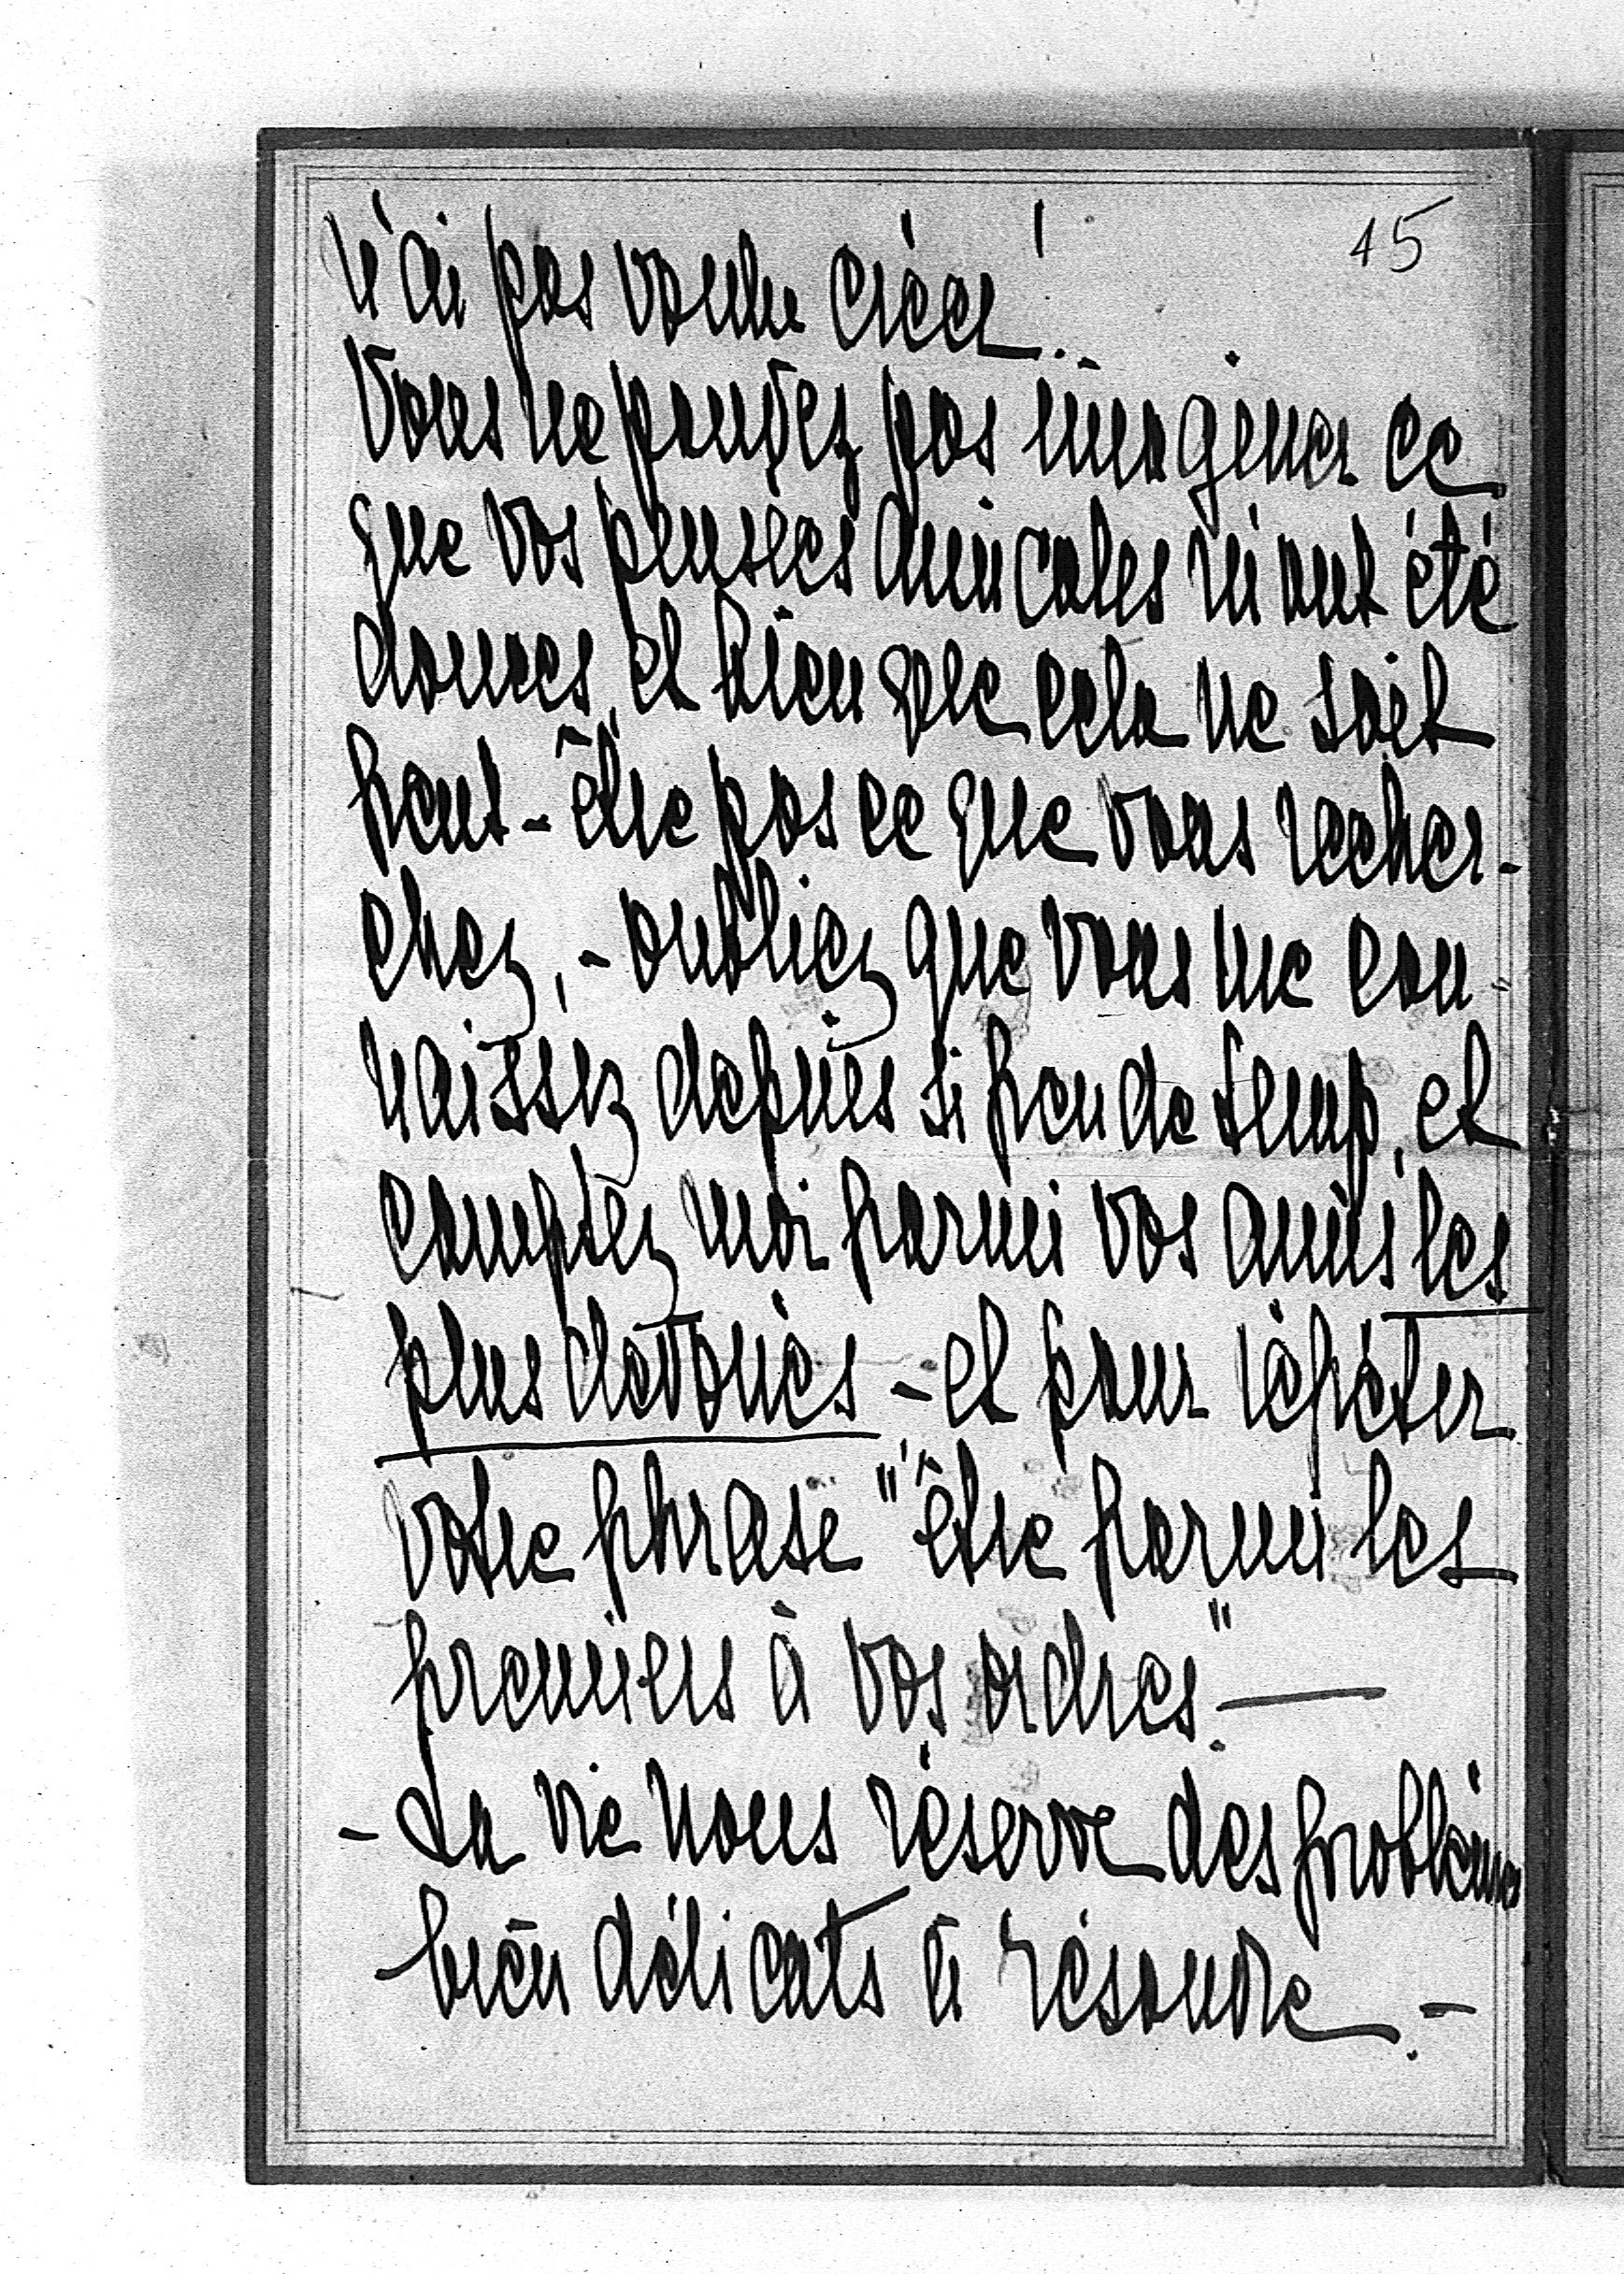 45
n'ai pas voulu créer!..
Vous ne pouvez pas imaginer ce
que vos pensées amicales m'ont été
douces, et bien que cela ne soit
peut-être pas ce que vous recher-
chez, - oubliez que vous me con-
naissez depuis si peu de temp, et
comptez moi parmi vos amis les
plus devoués - et pour répéter
votre phrase "être parmi les
premiers à vos ordres". -
- La vie nous réserve des problèmes
bien délicats à résoudre. -